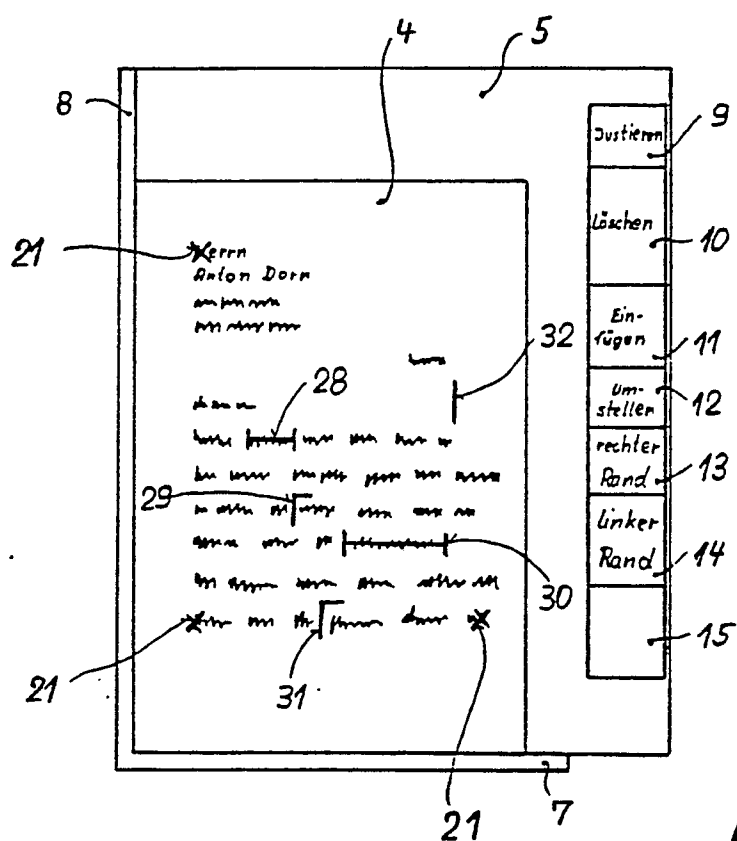 4
5
8
9
Justieren
Löschen
10
21
Herrn
Anton Dorn
Ein-
fügen
11
32
28
Um-
steller
12
rechter
Rand
13
29
linker
Rand
14
30
15
21
31
21
7